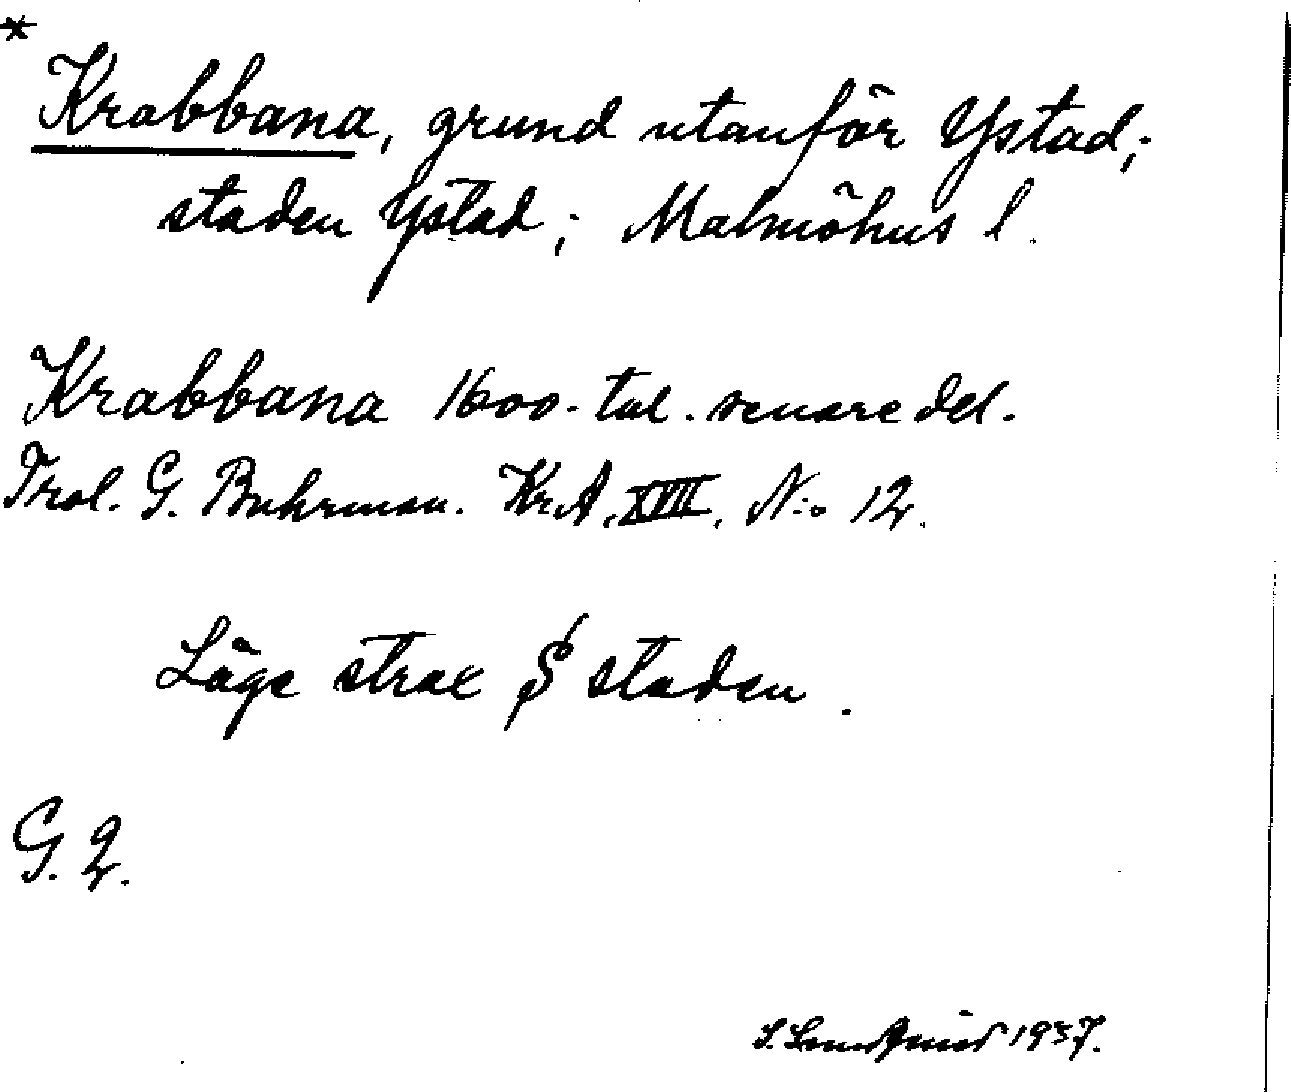 *
Krabbana, grund utanför Ystad;
staden Ystad; Malmöhus l.
Krabbana 1600-tal. senare del.
Trol. G. Buhrman. Kr.A. XVII. N:o 12.
Läge strax S staden.
G. 2.
S. Lundquist 1937.